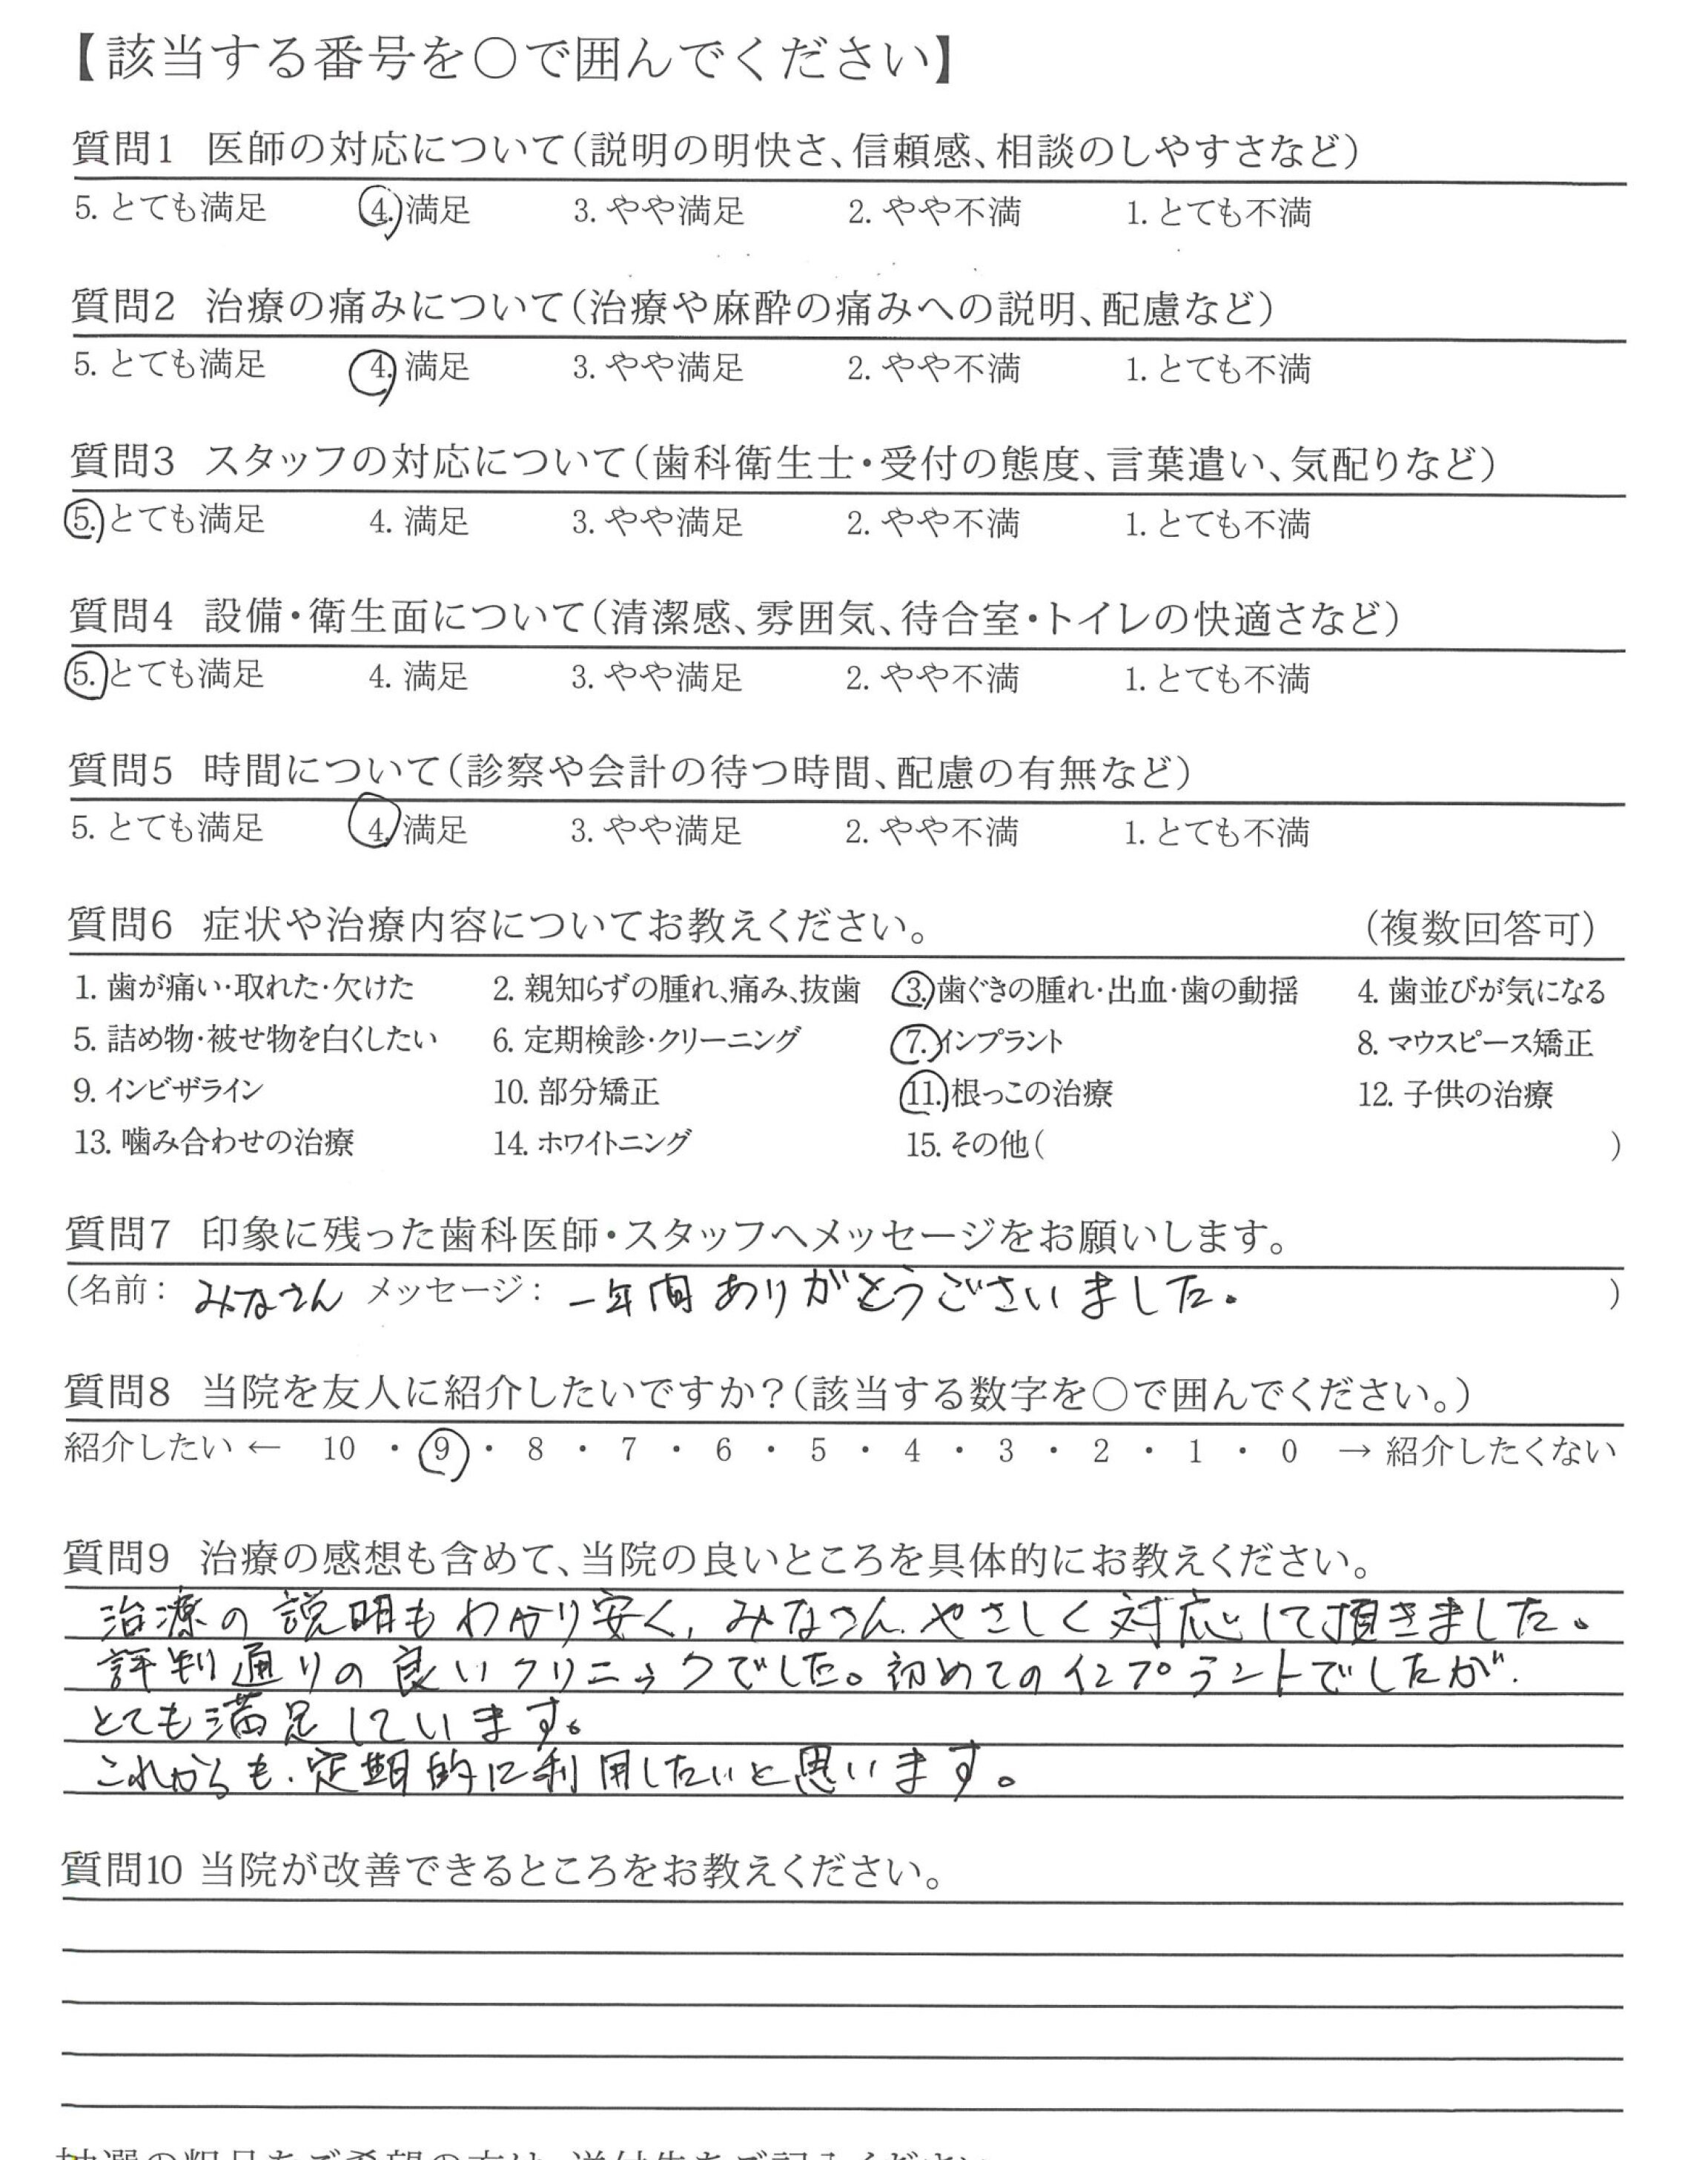 【該当する番号を〇で囲んでください】
質問1 医師の対応について(説明の明快さ、信頼感、相談のしやすさなど)
5. とても満足 4. 満足 3. やや満足 2. やや不満 1. とても不満
質問2 治療の痛みについて(治療や麻酔の痛みへの説明、配慮など)
5. とても満足 4. 満足 3. やや満足 2. やや不満 1. とても不満
質問3 スタッフの対応について(歯科衛生士・受付の態度、言葉遣い、気配りなど)
5. とても満足 4. 満足 3. やや満足 2. やや不満 1. とても不満
質問4 設備・衛生面について(清潔感、雰囲気、待合室・トイレの快適さなど)
5. とても満足 4. 満足 3. やや満足 2. やや不満 1. とても不満
質問5 時間について(診察や会計の待つ時間、配慮の有無など)
5. とても満足 4. 満足 3. やや満足 2. やや不満 1. とても不満
質問6 症状や治療内容についてお教えください。 (複数回答可)
1. 歯が痛い・取れた・欠けた 2. 親知らずの腫れ、痛み、抜歯 3. 歯ぐきの腫れ・出血・歯の動揺 4. 歯並びが気になる
5. 詰め物・被せ物を白くしたい 6. 定期検診・クリーニング 7. インプラント 8. マウスピース矯正
9. インビザライン 10. 部分矯正 11. 根っこの治療 12. 子供の治療
13. 噛み合わせの治療 14. ホワイトニング 15. その他( )
質問7 印象に残った歯科医師・スタッフへメッセージをお願いします。
(名前: みなさん メッセージ: 一年間ありがとうございました。 )
質問8 当院を友人に紹介したいですか?(該当する数字を〇で囲んでください。)
紹介したい ← 10 ・ 9 ・ 8 ・ 7 ・ 6 ・ 5 ・ 4 ・ 3 ・ 2 ・ 1 ・ 0 → 紹介したくない
質問9 治療の感想も含めて、当院の良いところを具体的にお教えください。
治療の説明もわかり安く、みなさん、やさしく対応して頂きました。
評判通りの良いクリニックでした。初めてのインプラントでしたが、
とても満足しています。
これからも、定期的に利用したいと思います。
質問10 当院が改善できるところをお教えください。